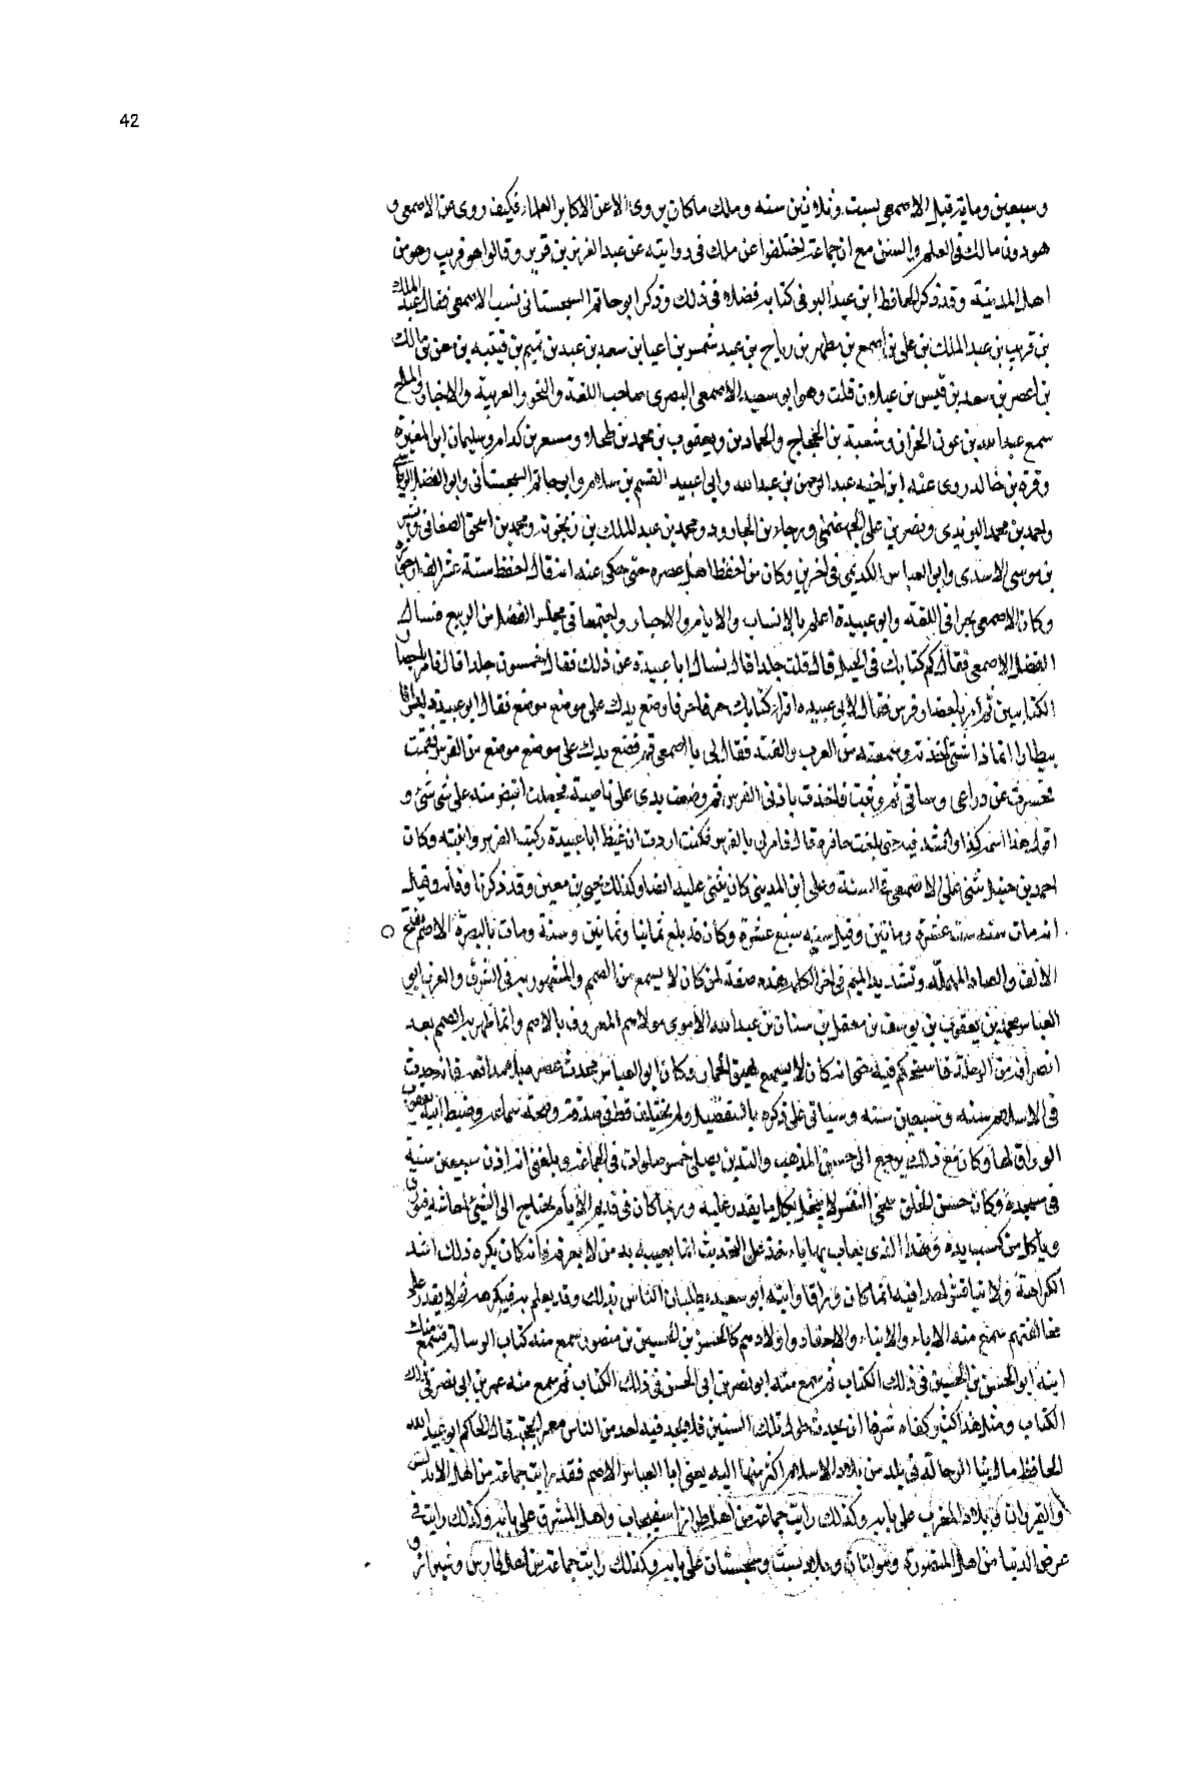 42
وسبعين وماية قبل الاصمعى بست وثلاثين سنه وملك ماكان يروى الا عن الاكابر العلماء فكيف روى عن الاصمعى و
هو دون مالك فى العلم والسنن مع ان جماعة اختلفوا عن ملك فى روايته عن عبد العزيز بن قرير وقالوا هو قريب وهو من
اهل المدينة وقد ذكر الحافظ ابن عبد البر فى كتابه فضلا فى ذلك وذكر ابو حاتم السجستانى نسب الاصمعى فقال عبد الملك
بن قريب بن عبد الملك بن على بن اصمع بن مظهر بن رياح بن عبد شمس بن اعيا بن سعد بن عبد بن تميم بن قتيبه بن معن بن مالك
بن اعصر بن سعد بن قيس بن عيلان قلت وهو ابو سعيد الاصمعى البصرى صاحب اللغة والنحو والعربية والاخبار والملح
سمع عبد الله بن عون الخزاز وشعبة بن الحجاج والحمادين ويعقوب بن محمد بن طحلاء ومسعر بن كدام وسليمان ابن المغيرة
وقرة بن خالد روى عنه ابن اخيه عبد الرحمن بن عبد الله وابى عبيد القسم بن سلام وابو حاتم السجستانى وابو الفضل الرياشى
واحمد بن محمد اليزيدى ونصر بن على الجهضمى ورجاء بن الجارود ومحمد بن عبد الملك بن زنجويه ومحمد بن اسحق الصغانى وبشر
بن موسى الاسدى وابو العباس الكديمى فى اخرين وكان من احفظ اهل عصره حتى حكى عنه انه قال احفظ ستة عشر الف ارجوزة
وكان الاصمعى بحرا فى اللغة وابو عبيدة اعلم بالانساب والايام والاخبار واجتمعا فى مجلس الفضل بن الربيع فسال
الفضل الاصمعى فقال كم كتابك فى الخيل قال قلت جلد قال فسال ابا عبيدة عن ذلك فقال خمسون جلدا قال فامر باحضار
الكتابين ثم امر باحضار فرس فقال لابى عبيده اقرا كتابك حرفا حرفا وضع يدك على موضع موضع فقال ابو عبيدة ليس انا
بيطارا انما ذا شئ اخذته وسمعته من العرب والفته فقال لى يا اصمعى قم فضع يدك على موضع موضع من الفرس فقمت
فحسرت عن ذراعى وساقى ثم وثبت فاخذت باذنى الفرس ثم وضعت يدى على ناصيته فجعلت اقبض منه على شئ شئ و
اقول هذا اسمه كذا وانشد فيه حتى بلغت حافره قال فامر لى بالفرس فكنت اذا اردت ان اغيظ ابا عبيدة ركبت الفرس واتيته وكان
احمد بن حنبل يثنى على الاصمعى فى السنة وعلى ابن المدينى كان يثنى عليه ايضا وكذلك يحيى بن معين وقد ذكرنا وفاته وقيل
انه مات سنه ست عشرة وماتين وقيل سنه سبع عشرة وكان قد بلغ ثمانيا وثمانين وسنة ومات بالبصرة الاصم بفتح
الالف والصاد المهمله وتشديد الميم فى اخر الكلمه هذه صفة لمن كان لا يسمع من الصمم والمشهور به فى الشرق والغرب ابى
العباس محمد بن يعقوب بن يوسف بن معقل بن سنان بن عبد الله الاموى مولاهم المعروف بالاصم وانما ظهر به الصمم بعد
انصرافه من الرحلة فاستحكم فيه حتى انه كان لا يسمع نهيق الحمار وكان ابو العباس محدث عصره بلا مدافعه فانه حدث
فى الاسلام سته وسبعين سنه وسياتى على ذكره بالتفصيل ولم يختلف قط فى صدقه وصحة سماعه وضبط ابيه يعقوب
الوراق لها وكان مع ذلك يرجع الى حسن المذهب والتدين يصلى خمس صلوات فى الجماعة وبلغنى انه اذن سبعين سنة
فى مسجده وكان حسن الخلق سخى النفس لا يبخل بكل ما يقدر عليه وربما كان فى قديم الايام يحتاج الى الشئ لمعاشه فيورق
وياكل من كسب يده وهذا الذى يعاب به انه ياخذ على التحديث انما يعيبه به من لا يعرفه فانه كان يكره ذلك اشد
الكراهة ولا يناقش احدا فيه انما كان وراقه وابنه ابو سعيد يطالبان الناس بذلك وقد يعلم به فيكرهه ثم لا يقدر على
مخالفتهم سمع منه الاباء والابناء والاحفاد واولادهم كالحسن بن الحسين بن منصور سمع منه كتاب الرسالة ثم سمع منه
ابنه ابو الحسن بن الحسين فى ذلك الكتاب ثم سمع منه ابو نصر بن ابى الحسن فى ذلك الكتاب ثم سمع منه عمر بن ابى نصر فى ذلك
الكتاب ومثل هذا كثير وكفاه شرفا ان يحدث طول تلك السنين فلا يجد فيه احد من الناس مغمزا بحجة قال الحاكم ابو عبد الله
الحافظ ما راينا الرحالة فى بلد من بلاد الاسلام اكثر منها اليه يعنى ابا العباس الاصم فقد رايت جماعة من اهل الاندلس
والقيروان وبلاد المغرب على بابه وكذلك رايت جماعة من اهل طراز اسفيجاب واهل المشرق على بابه وكذلك رايت فى
عرض الدنيا من اهل المنصورة ومولتان وبلاد بست وسجستان على بابه وكذلك رايت جماعة من اهل فارس وشيراز و